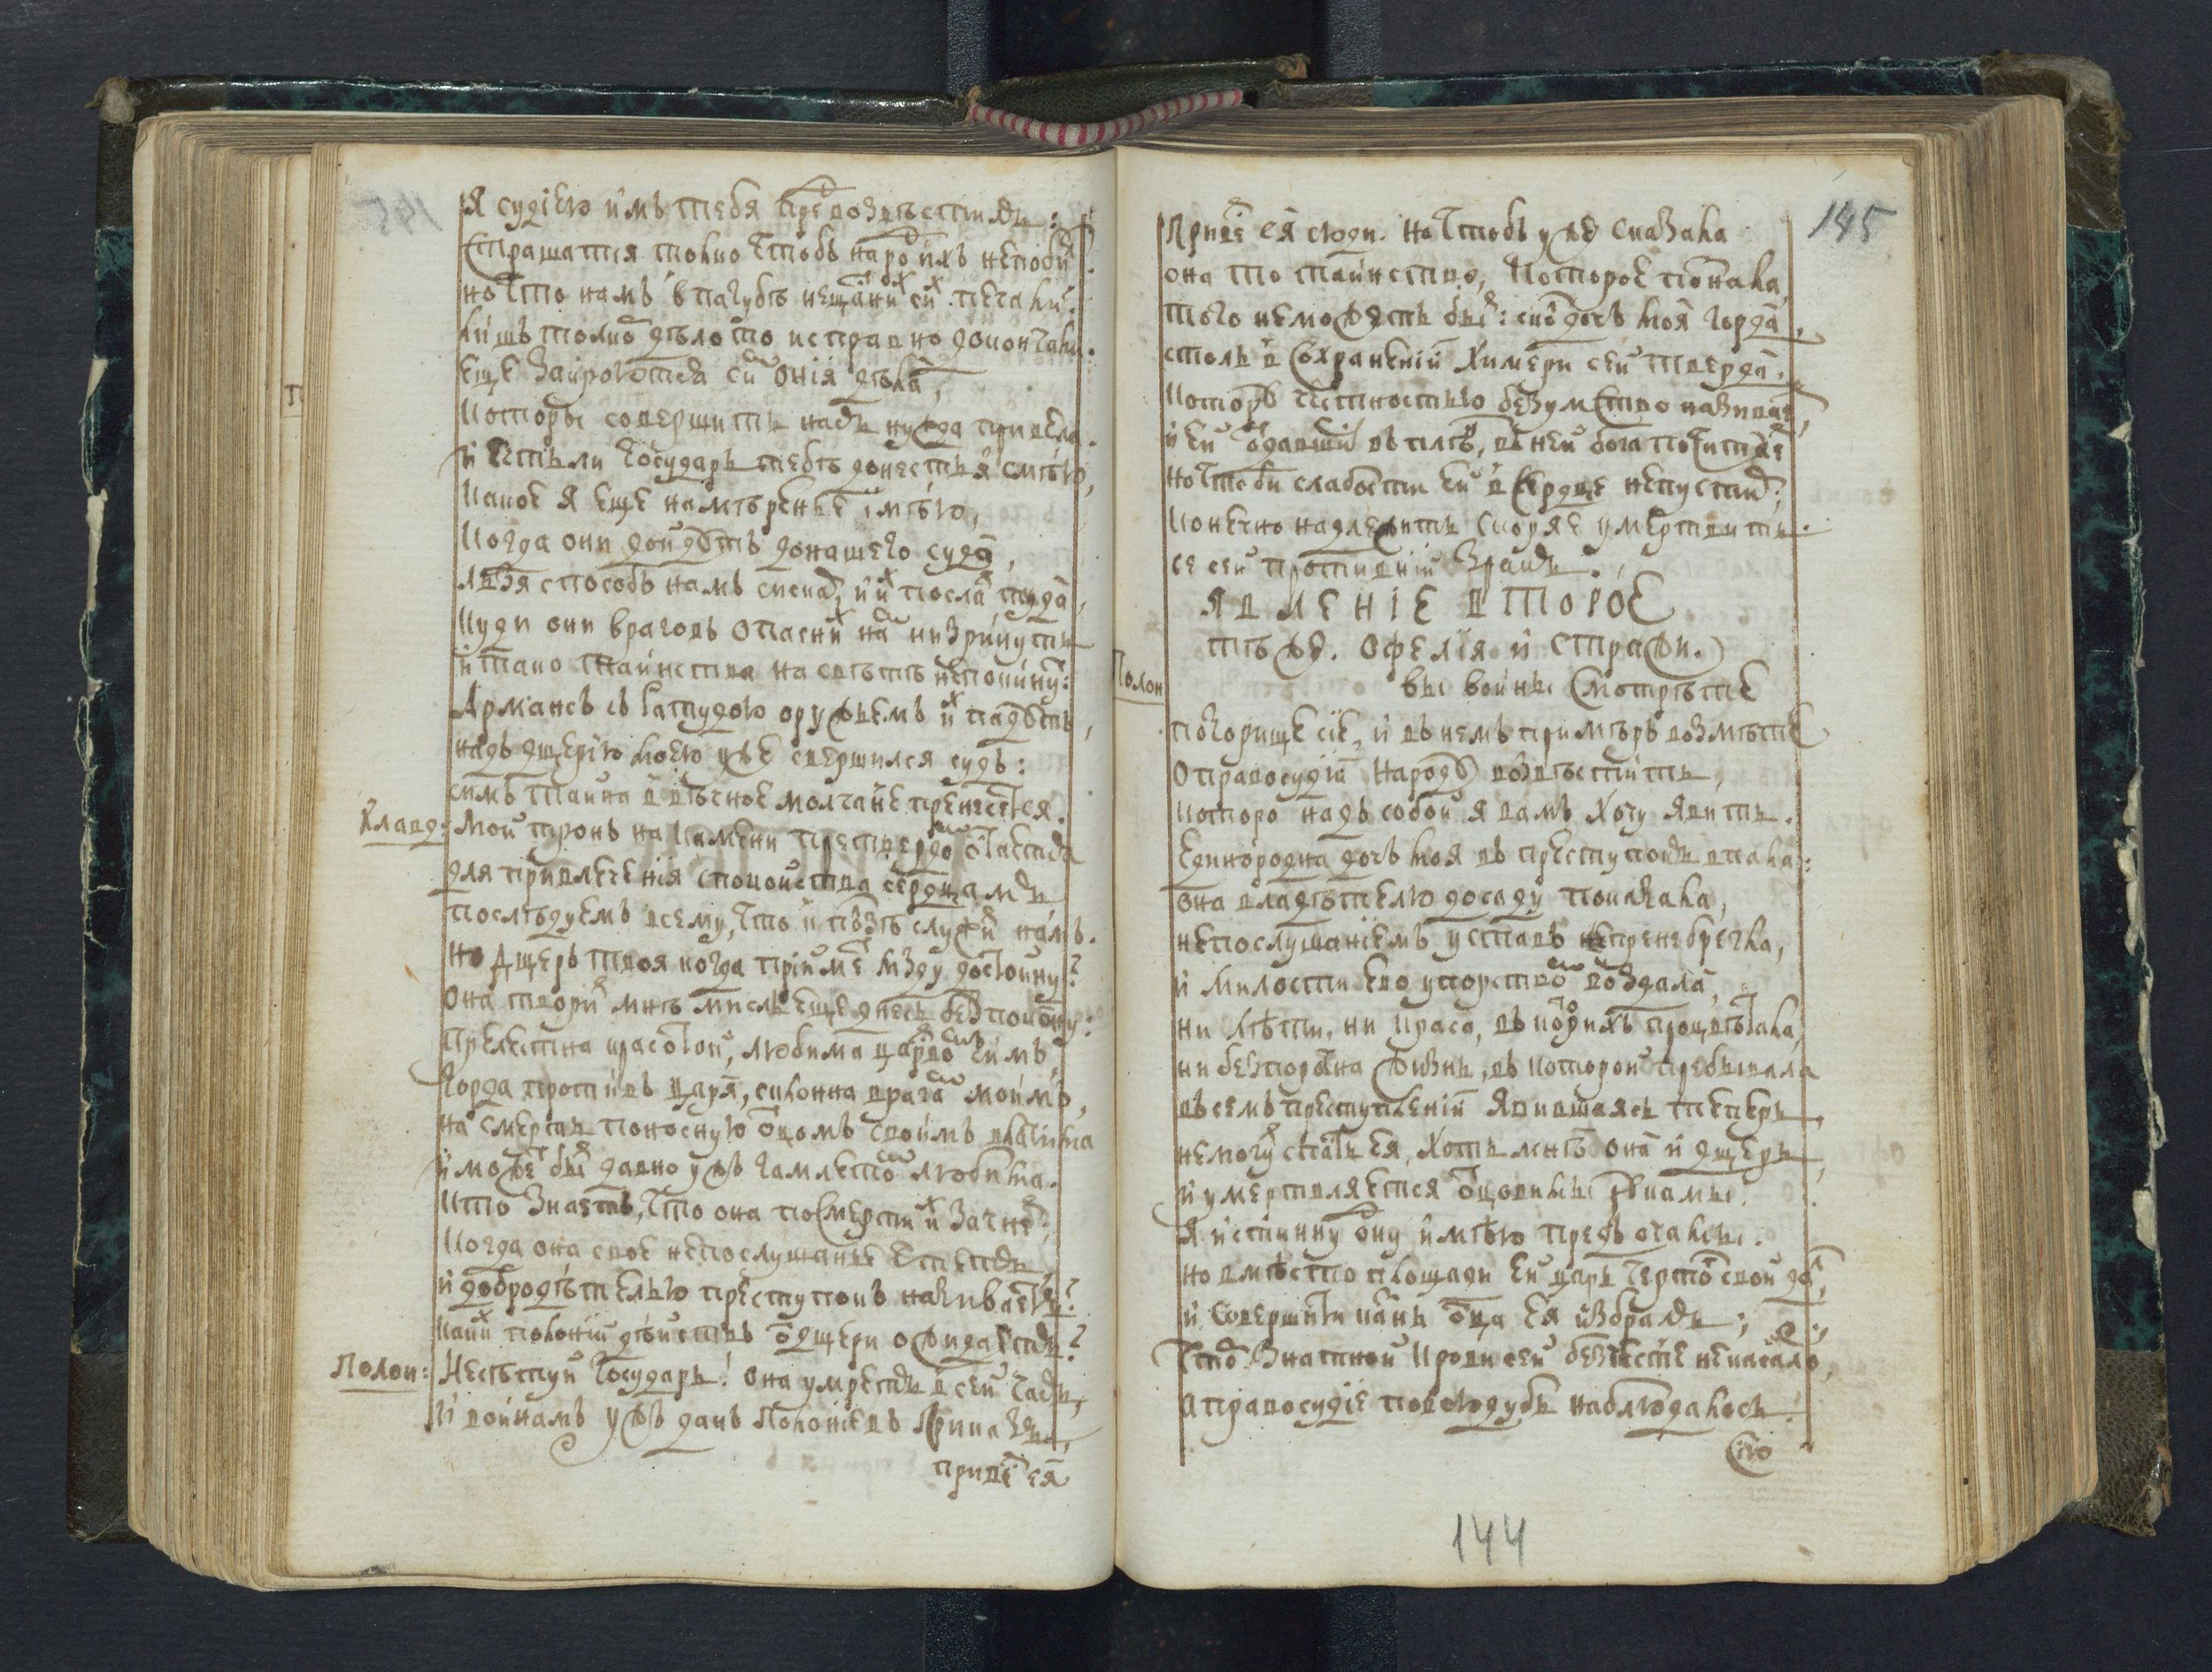 Я судїею имъ тебя превозвѣститъ:
Страшатся токмо чтобъ народ ихъ непобил.
но что намъ в пагубѣ нещасних сих печали?
лишъ толко дѣло то исправно докончали.
еще За кроютса сим онїя дѣла,
которы совершитъ насъ нужда привела.
и естьли Государь тебѣ донесть я смѣю,
какое я еще намѣренье имѣю,
когда они дойдутъ до нашего суда,
льзя способъ намъ сискат, и их послат туда,
куди они враговъ опасних нам низринуть
и тако таинства на свѣтъ не покинут:
Армансъ съ Гатудою оружьемъ их падутъ,
надъ дщерїю моею уже свершился судъ:
симъ таина в вѣчное молчанье пренесется.
Клавд: Мой тронъ на камени претвердом оснуется
для привлеченїя спокойства сердца мдъ
послѣдуемъ всему, что и позвѣ служит намъ.
Но дщерь твоя когда прїимет мзду достойну?
Она творит мнѣ мисль еще днесь безпокойну:
Прелестна красотой, любима царством симъ,
Горда противъ царя, склонна врагам моимъ,
на смерть поносную отцомъ своимъ влачима
и может быт давно ужъ гамлетом любима.
Кто знаетъ, что она по смерти их зачнет;
Когда она свое непослушанье
и добродѣтелью преступокъ називаетъ?
каких полонїй дѣйствъ от дщери ожидаетъ?
Полон: Несѣтуй Государь! она умретъ в сей часъ,
И воинамъ ужъ данъ Полонїевъ приказъ,
приве ея
145
Приве ея сюди. но чтобъ уже сказала
она то таинство, которое познала,
того неможетъ быть: сколь дочь моя горда,
столь в сохраненїи Химери сей тверда.
которо честностью безумство називает,
и ей отдавши въ плѣнъ, въ ней бога почитает
но чтоби слабости ей в сердце непустить;
конечно надлежитъ скоряе умертвить
се сей противний зракъ.
ЯВЛЕНІЕ ВТОРОЕ
тѣжъ. Офелїя и стражи.
Полон
вы воины смотрѣте
позорище сїе, и въ немъ примѣръ возмѣте
О правосудїи народу возвѣстить,
которо надъ собой я вамъ хочу явить.
Единородна дочь моя въ преступокъ впала:
она владѣтелю досаду показала,
непослушанїемъ уставъ пренебрегла,
и милости ево упорством воздала,
ни лѣти, ни краса, въ которихъ процвѣтала,
ни безпорочна жизнь, въ которой пребывала
въ семъ преступленїи явившаясь теперь,
немогут спасть ея, хоть мнѣ она и дщерь,
и умертвляется отцовимы руками.
Я истинну одну имѣю предъ очами.
но вмѣсто площади ей царь чертог свой дал,
и совершить казнь отца ея избралъ;
Чтоб знатной крови сей безчестїе некасалось,
а правосудїе повсюдубъ наблюдалось.
Сїю
144